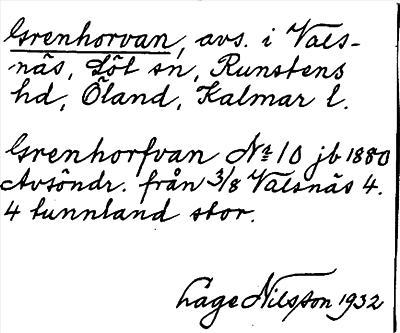 Grenhorvan, avs. i Vals-
näs, Löt sn, Runstens
hd, Öland, Kalmar l.
Grenhorfvan No 10 jb 1880
Avsöndr. från 3/8 Valsnäs 4.
4 tunnland stor.
Lage Nilsson 1932